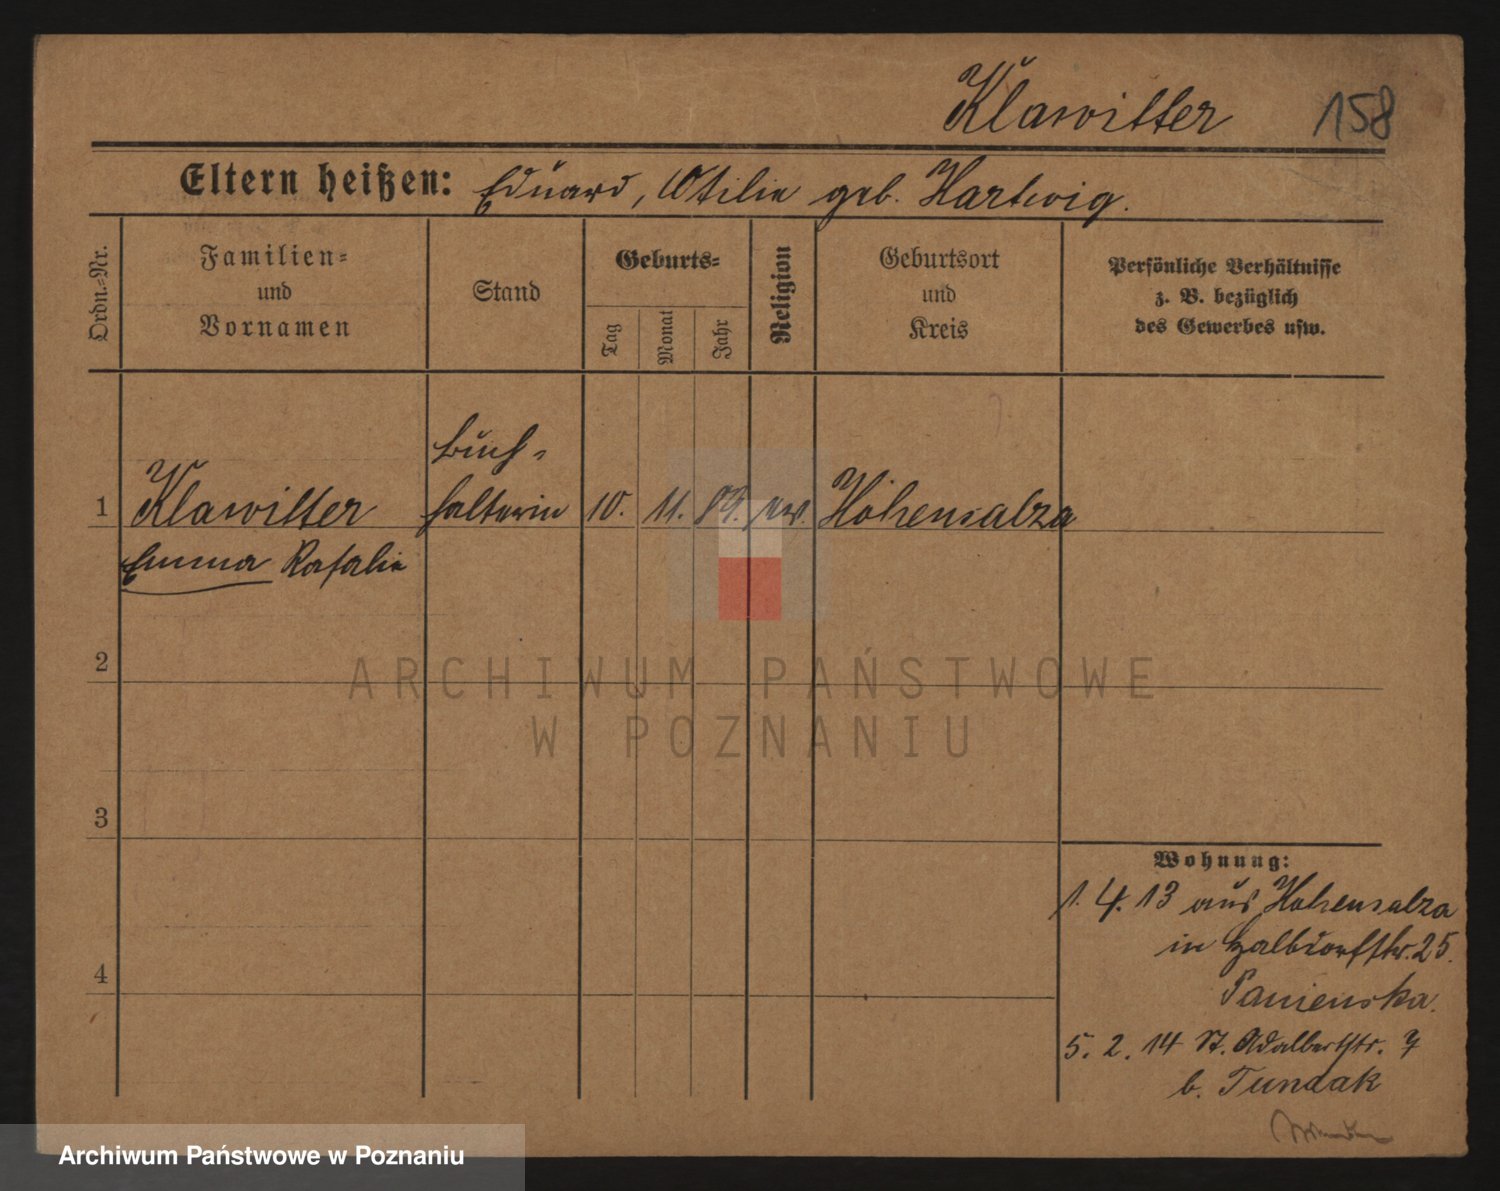 Klawitter 158
Eltern heißen: Eduard, Otilie geb. Hartwig.
Ordn.-Nr.
Familien-
und
Vornamen
Stand
Geburts-
Tag
Monat
Jahr
Religion
Geburtsort
und
Kreis
Persönliche Verhältnisse
z. B. bezüglich
des Gewerbes usw.
Buch-
1 Klawitter halterin 10. 11. 89. ev. Hohensalza
Emma Rosalie
2
ARCHIWUM PAŃSTWOWE
W POZNANIU
3
Wohnung:
1. 4. 13 aus Hohensalza
in Halbdorfstr. 25.
4
Panienska.
5. 2. 14 St. Adalbertstr. 7
b. Tundak
Archiwum Państwowe w Poznaniu